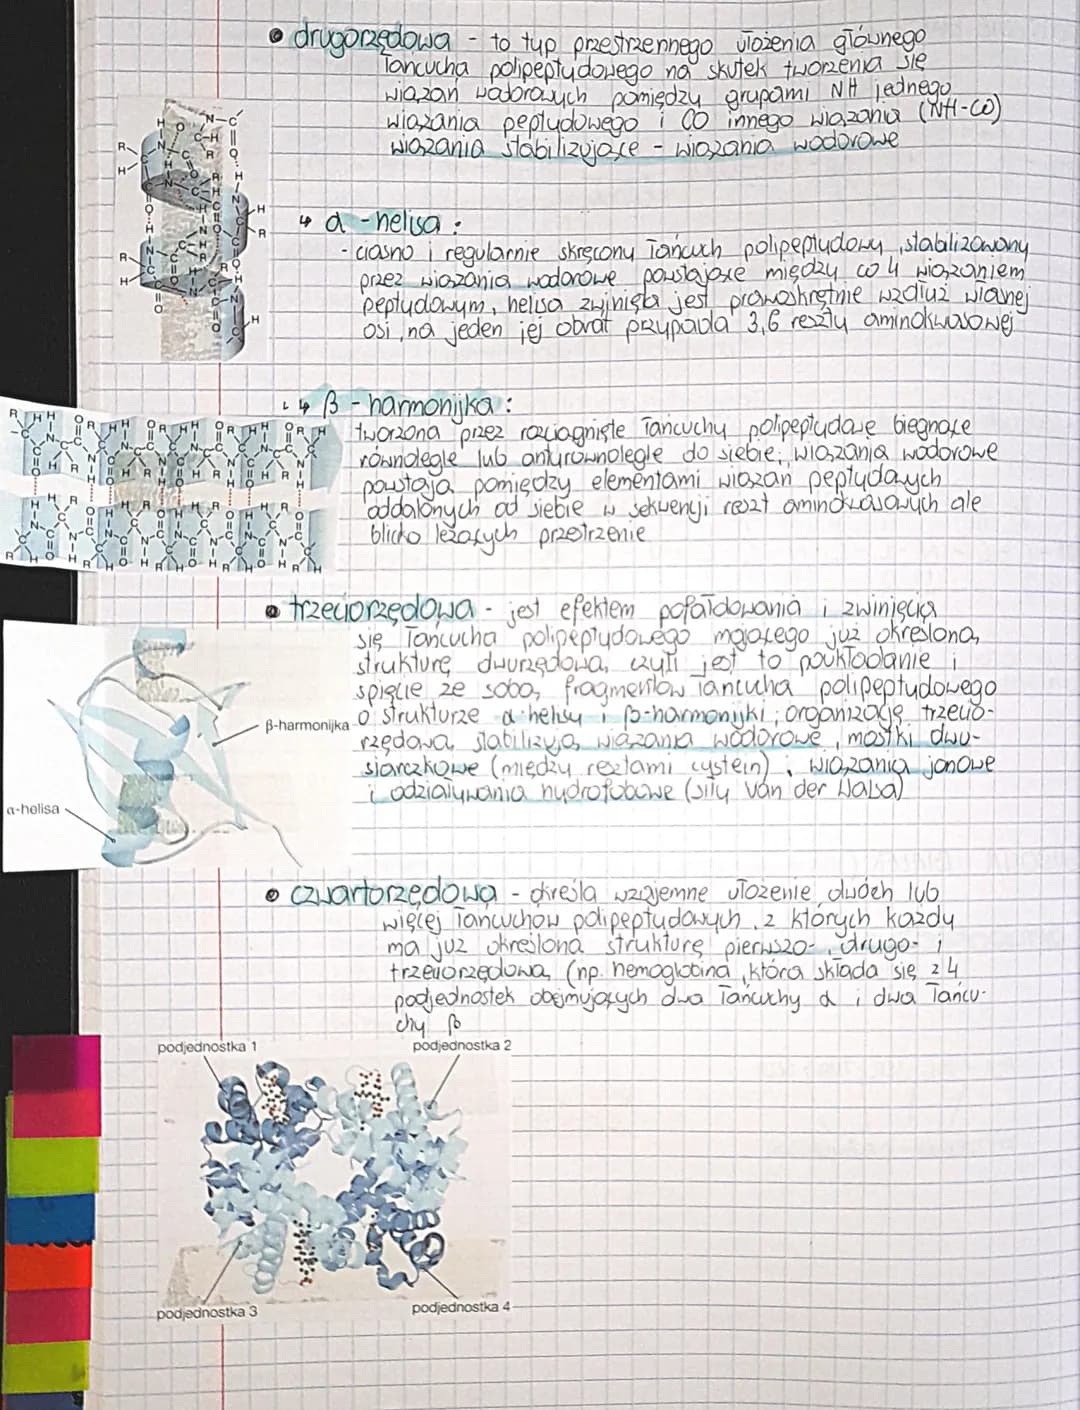 • drugorzędowa - to typ przestrzennego ułożenia głównego
łańcucha polipeptydowego na skutek tworzenia się
wiązań wodorowych pomiędzy grupami NH jednego
wiązania peptydowego i CO innego wiązania (NH-CO)
wiązania stabilizujące - wiązania wodorowe
↳ α - helisa :
- ciasno i regularnie skręcony łańcuch polipeptydowy, stabilizowany
przez wiązania wodorowe powstające między co 4 wiązaniem
peptydowym, helisa zwinięta jest prawoskrętnie wzdłuż własnej
osi, na jeden jej obrót przypada 3,6 reszty aminokwasowej
↳ β - harmonijka :
tworzona przez rozciągnięte łańcuchy polipeptydowe biegnące
równolegle lub antyrównolegle do siebie; wiązania wodorowe
powstają pomiędzy elementami wiązań peptydowych
oddalonych od siebie w sekwencji reszt aminokwasowych ale
blisko leżących przestrzenie
• trzeciorzędowa - jest efektem pofałdowania i zwinięcia
się łańcucha polipeptydowego mającego już określoną
strukturę dwurzędową, czyli jest to poukładanie i
spięcie ze sobą fragmentów łańcucha polipeptydowego
o strukturze α-helisy i β-harmonijki; organizację trzecio-
rzędową stabilizują wiązania wodorowe, mostki dwu-
siarczkowe (między resztami cystein), wiązania jonowe
i odziaływania hydrofobowe (siły Van der Walsa)
β-harmonijka
α-helisa
• czwartorzędowa - określa wzajemne ułożenie dwóch lub
więcej łańcuchów polipeptydowych, z których każdy
ma już określoną strukturę pierwszo-, drugo- i
trzeciorzędową (np. hemoglobina, która składa się z 4
podjednostek obejmujących dwa łańcuchy α i dwa łańcu-
chy β
podjednostka 1
podjednostka 2
podjednostka 3
podjednostka 4